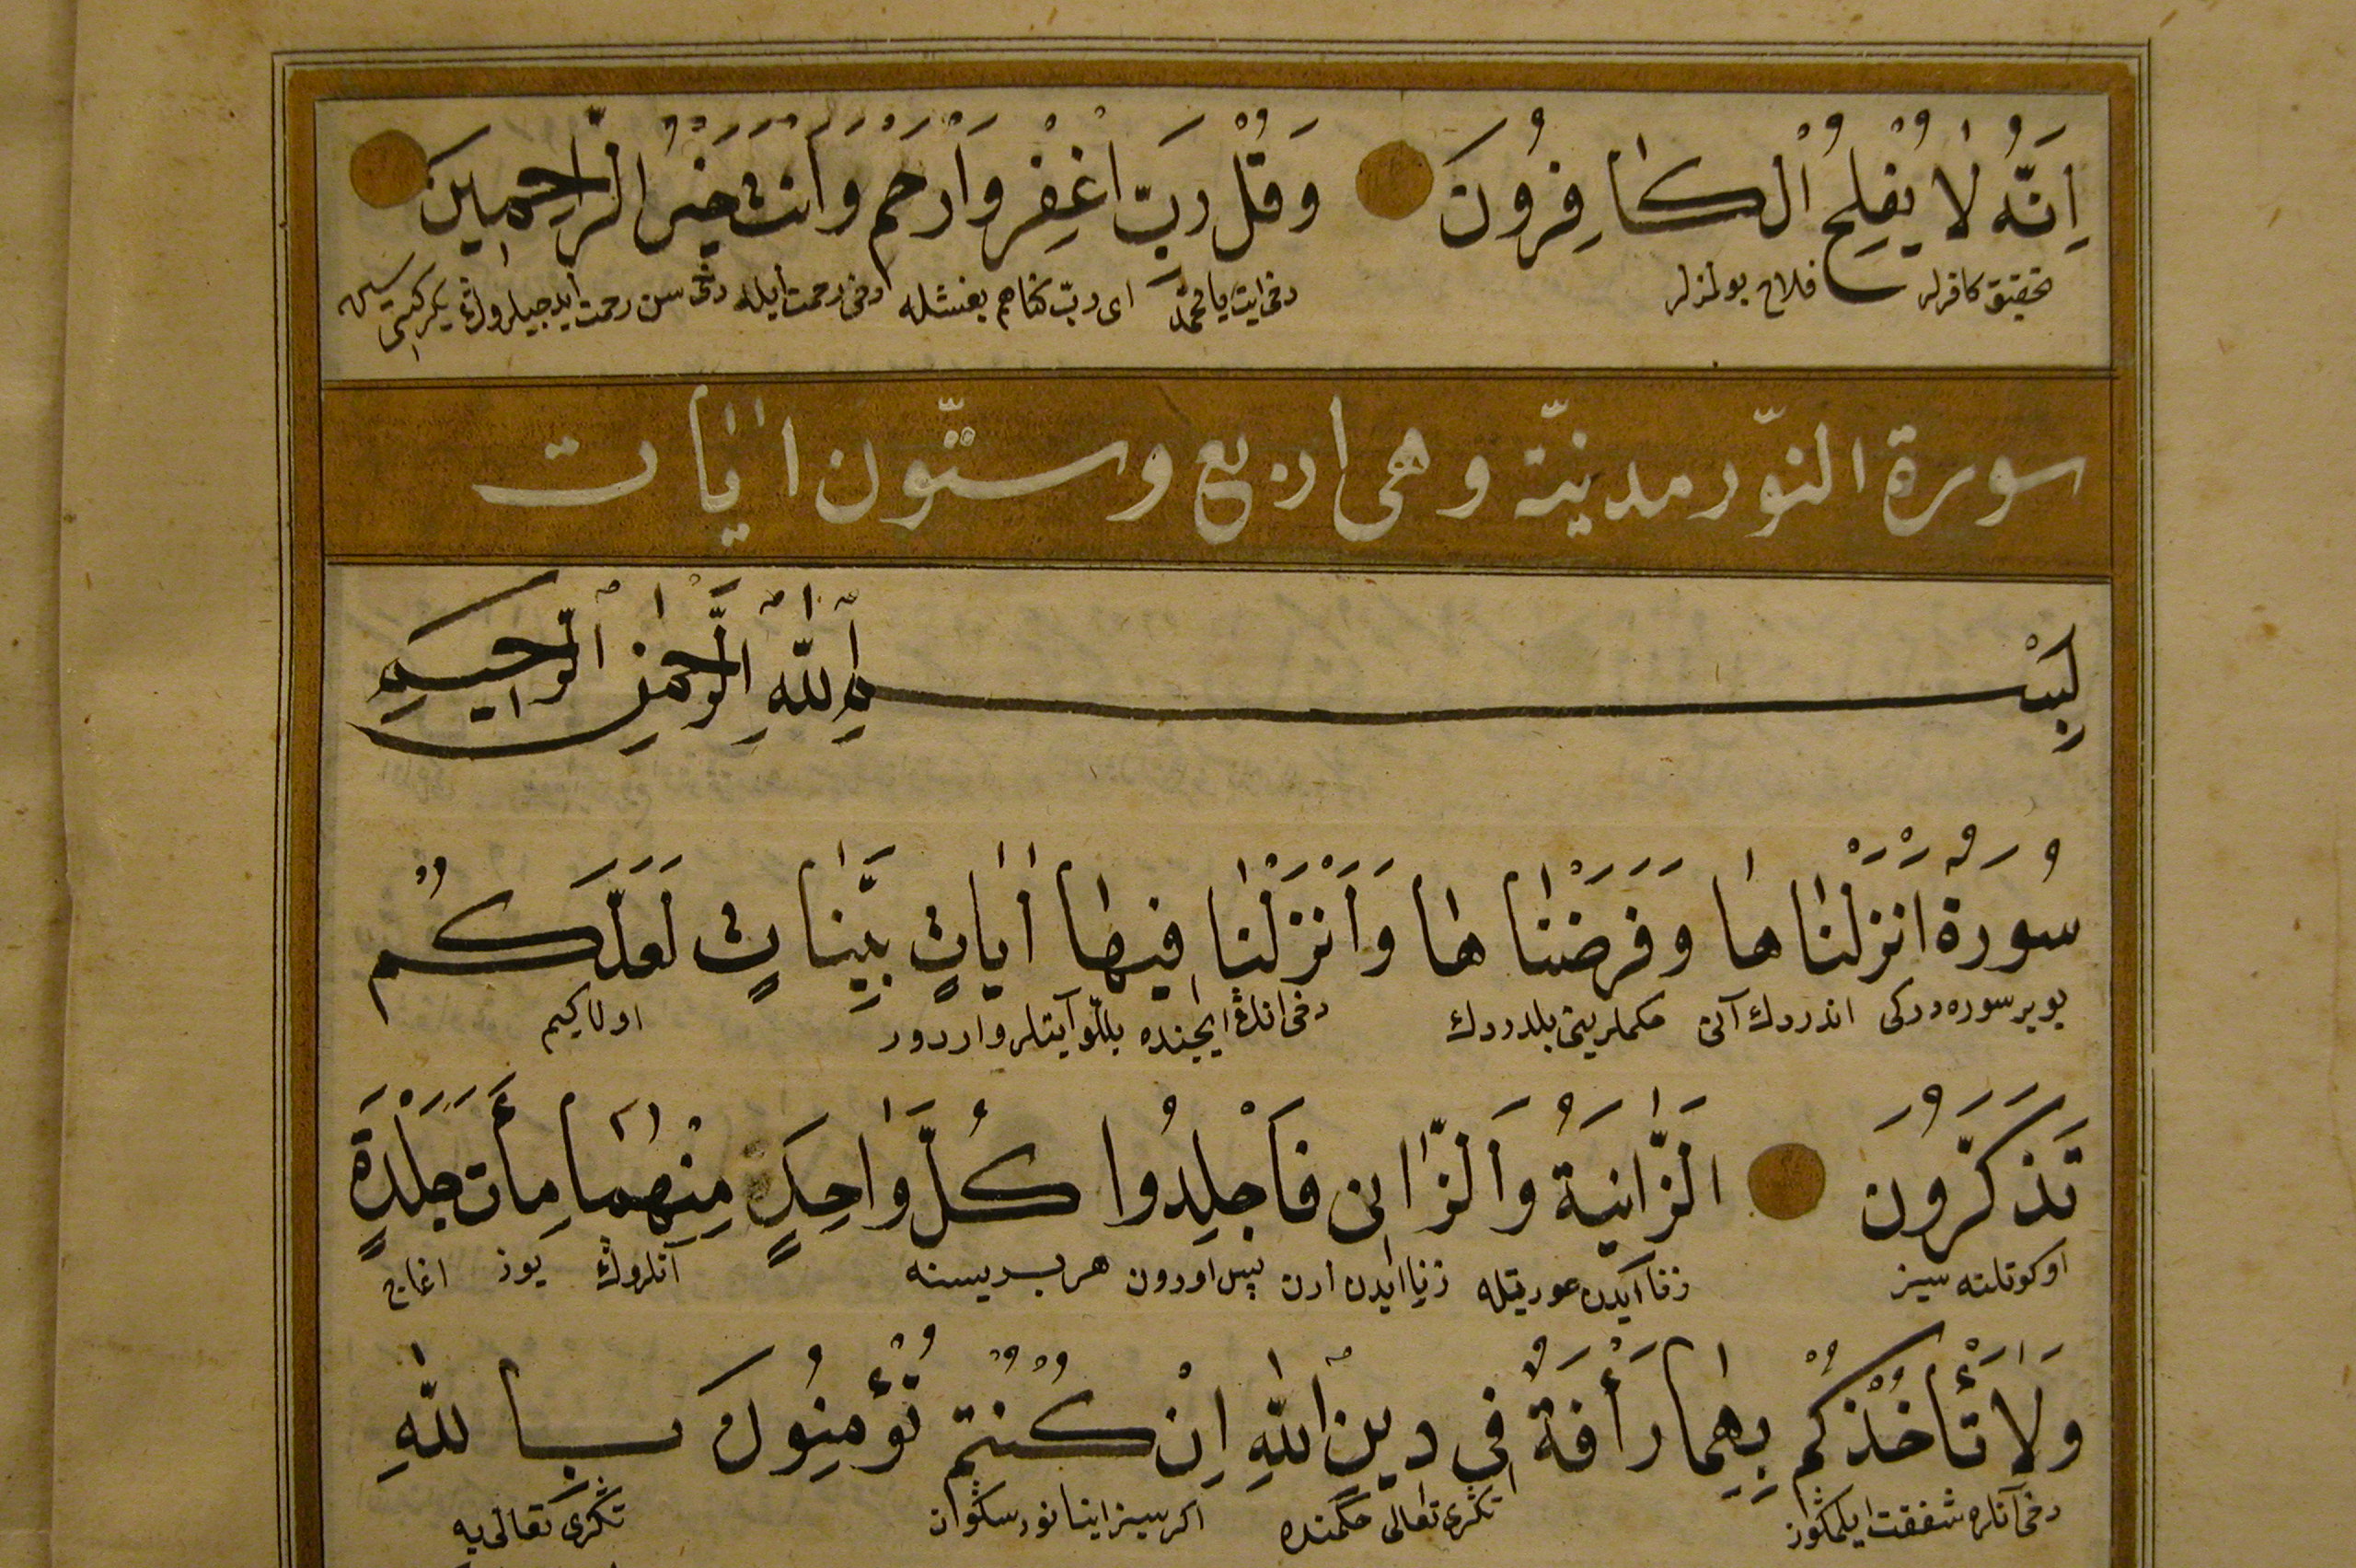 اِنَّهُ لَا يُفْلِحُ الْكَافِرُونَ وَقُلْ رَبِّ اغْفِرْ وَارْحَمْ وَاَنْتَ خَيْرُ الرَّاحِمِينَ
تحقيق كافرلر فلاح بولمزلر دخى ايت يا محمّد اى ربّ كناهم يغنشله دخى رحمت ايله دخى سن رحمت ايدجيلروڭ يكركيسى سن
سورة النّور مدنيّة وهى اربع وستّون اٰيات
بِسْمِ اللّٰهِ الرَّحْمٰنِ الرَّحِيمِ
سُورَة اَنْزَلْنَاهَا وَفَرَضْنَاهَا وَاَنْزَلْنَا فِيهَا اٰيَاتٍ بَيِّنَاتٍ لَعَلَّكُمْ
بو بر سوره دركى اندردك آنى حكملرينى بلدردك دخى انڭ ايچنده بللّو آيتلر واردور اولاكيم
تَذَكَّرُونَ اَلزَّانِيَةُ وَالزَّانِى فَاجْلِدُوا كُلَّ وَاحِدٍ مِنْهُمَا مِاَتَ جَلْدَةٍ
اوكوتلنه سيز زنا ايدن عورتله زنا ايدن ارن پس اورون هر بريسنه آنلروڭ يوز اغاج
وَلَا تَأْخُذْكُمْ بِهِمَا رَأْفَةٌ فِى دِينِ اللّٰهِ اِنْ كُنْتُمْ تُؤْمِنُونَ بِاللّٰهِ
دخى آنلره شفقت ايلمكوز تڭرى تعالى حكمنده اكر سيز اينانورسكوز تڭرى تعالى يه